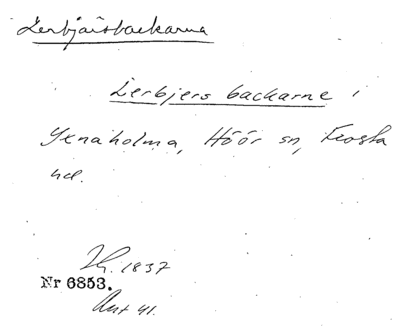 Lerbjärsbackarna
Lerbjers backarne i
Yxnaholma, Höör sn, Frosta
hd.
1837
Nr 6853.
Ant 41.